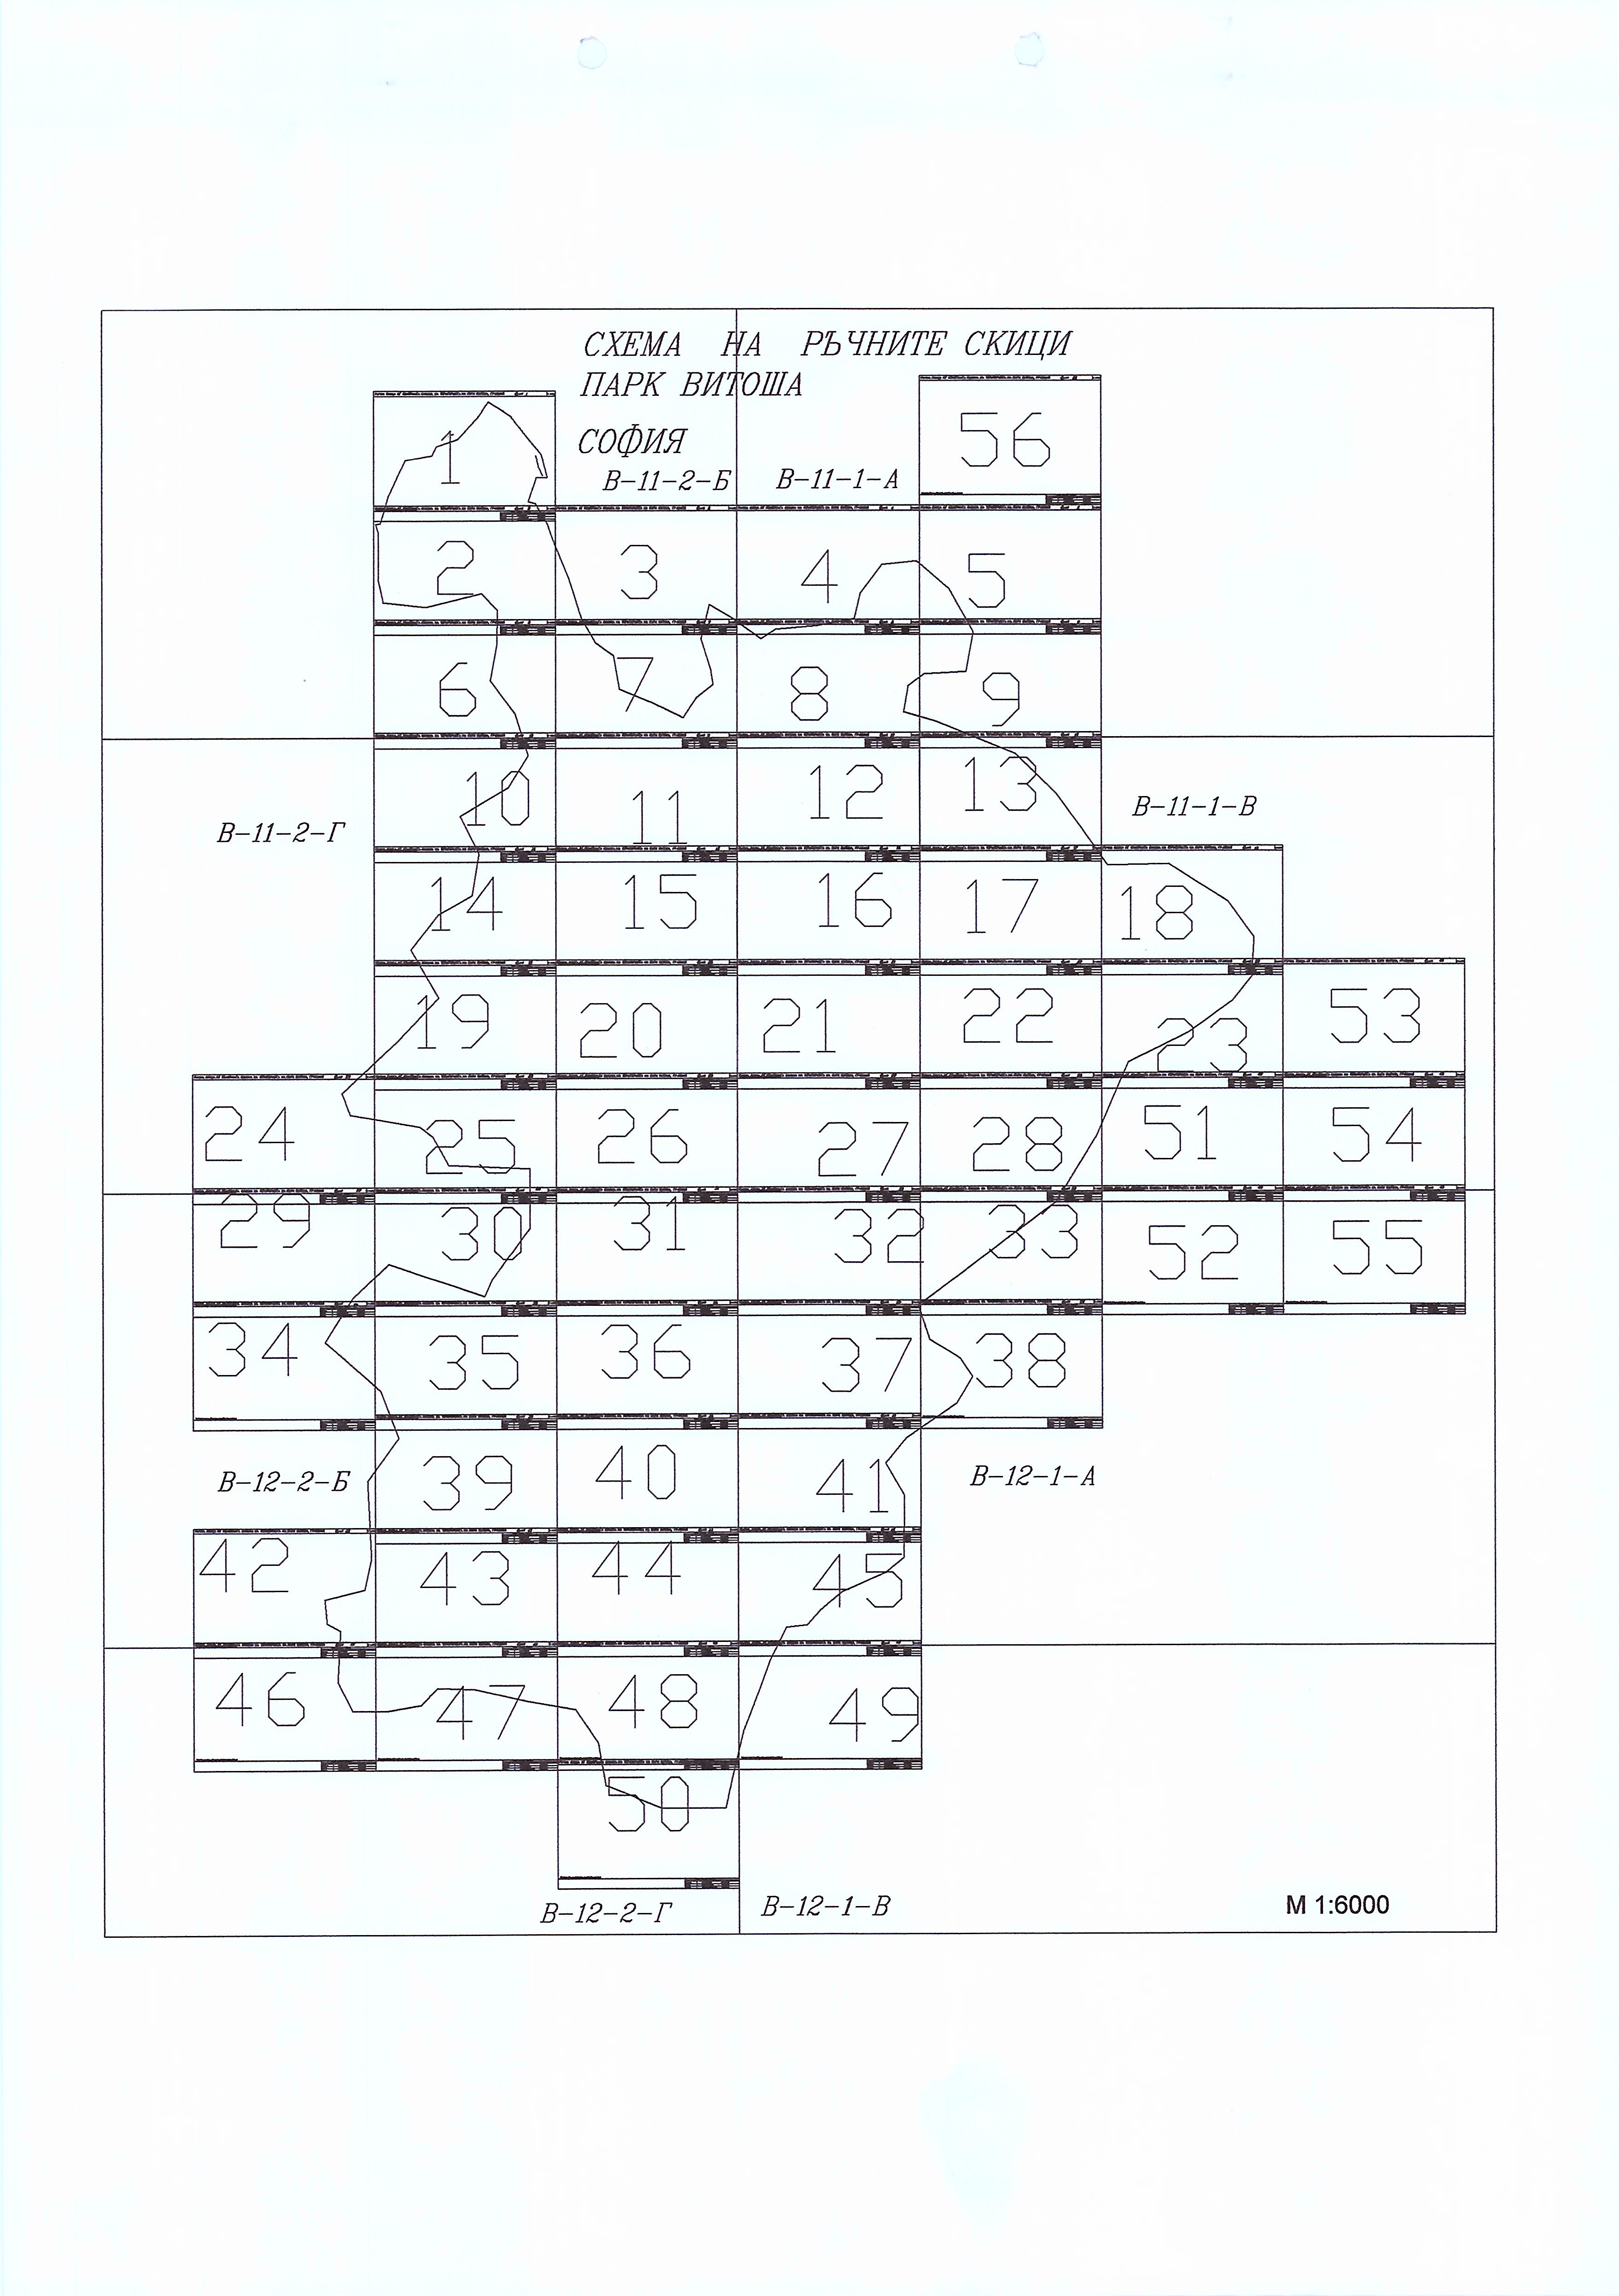 СХЕМА НА РЪЧНИТЕ СКИЦИ
ПАРК ВИТОША
СОФИЯ
В-11-2-Б В-11-1-А
1 56
2 3 4 5
6 7 8 9
10 11 12 13
В-11-2-Г В-11-1-В
14 15 16 17 18
19 20 21 22 23 53
24 25 26 27 28 51 54
29 30 31 32 33 52 55
34 35 36 37 38
39 40 41
В-12-2-Б В-12-1-А
42 43 44 45
46 47 48 49
50
В-12-2-Г В-12-1-В
М 1:6000